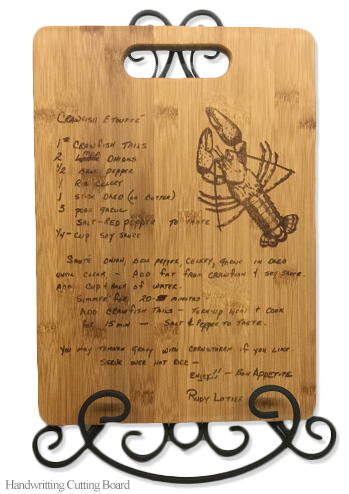 "Crawfish Etouffe"
1# Crawfish Tails
2 med Onions
1/2 Bell pepper
1 Rib Celery
1 Stick Oleo (or butter)
3 pods garlic
Salt - Red Pepper to taste
1/4 - cup soy sauce
Saute onion, bell pepper, celery, garlic in oleo
until clear - Add fat from crawfish & soy sauce.
Add cup & half of water.
Simmer for 20 minutes.
Add crawfish tails - turn up heat & cook
for 15 min - Salt & Pepper to taste.
You may thicken gravy with cornstarch if you like
Serve over hot rice -
Enjoy!! - Bon Appetite
Rudy
Handwritting Cutting Board